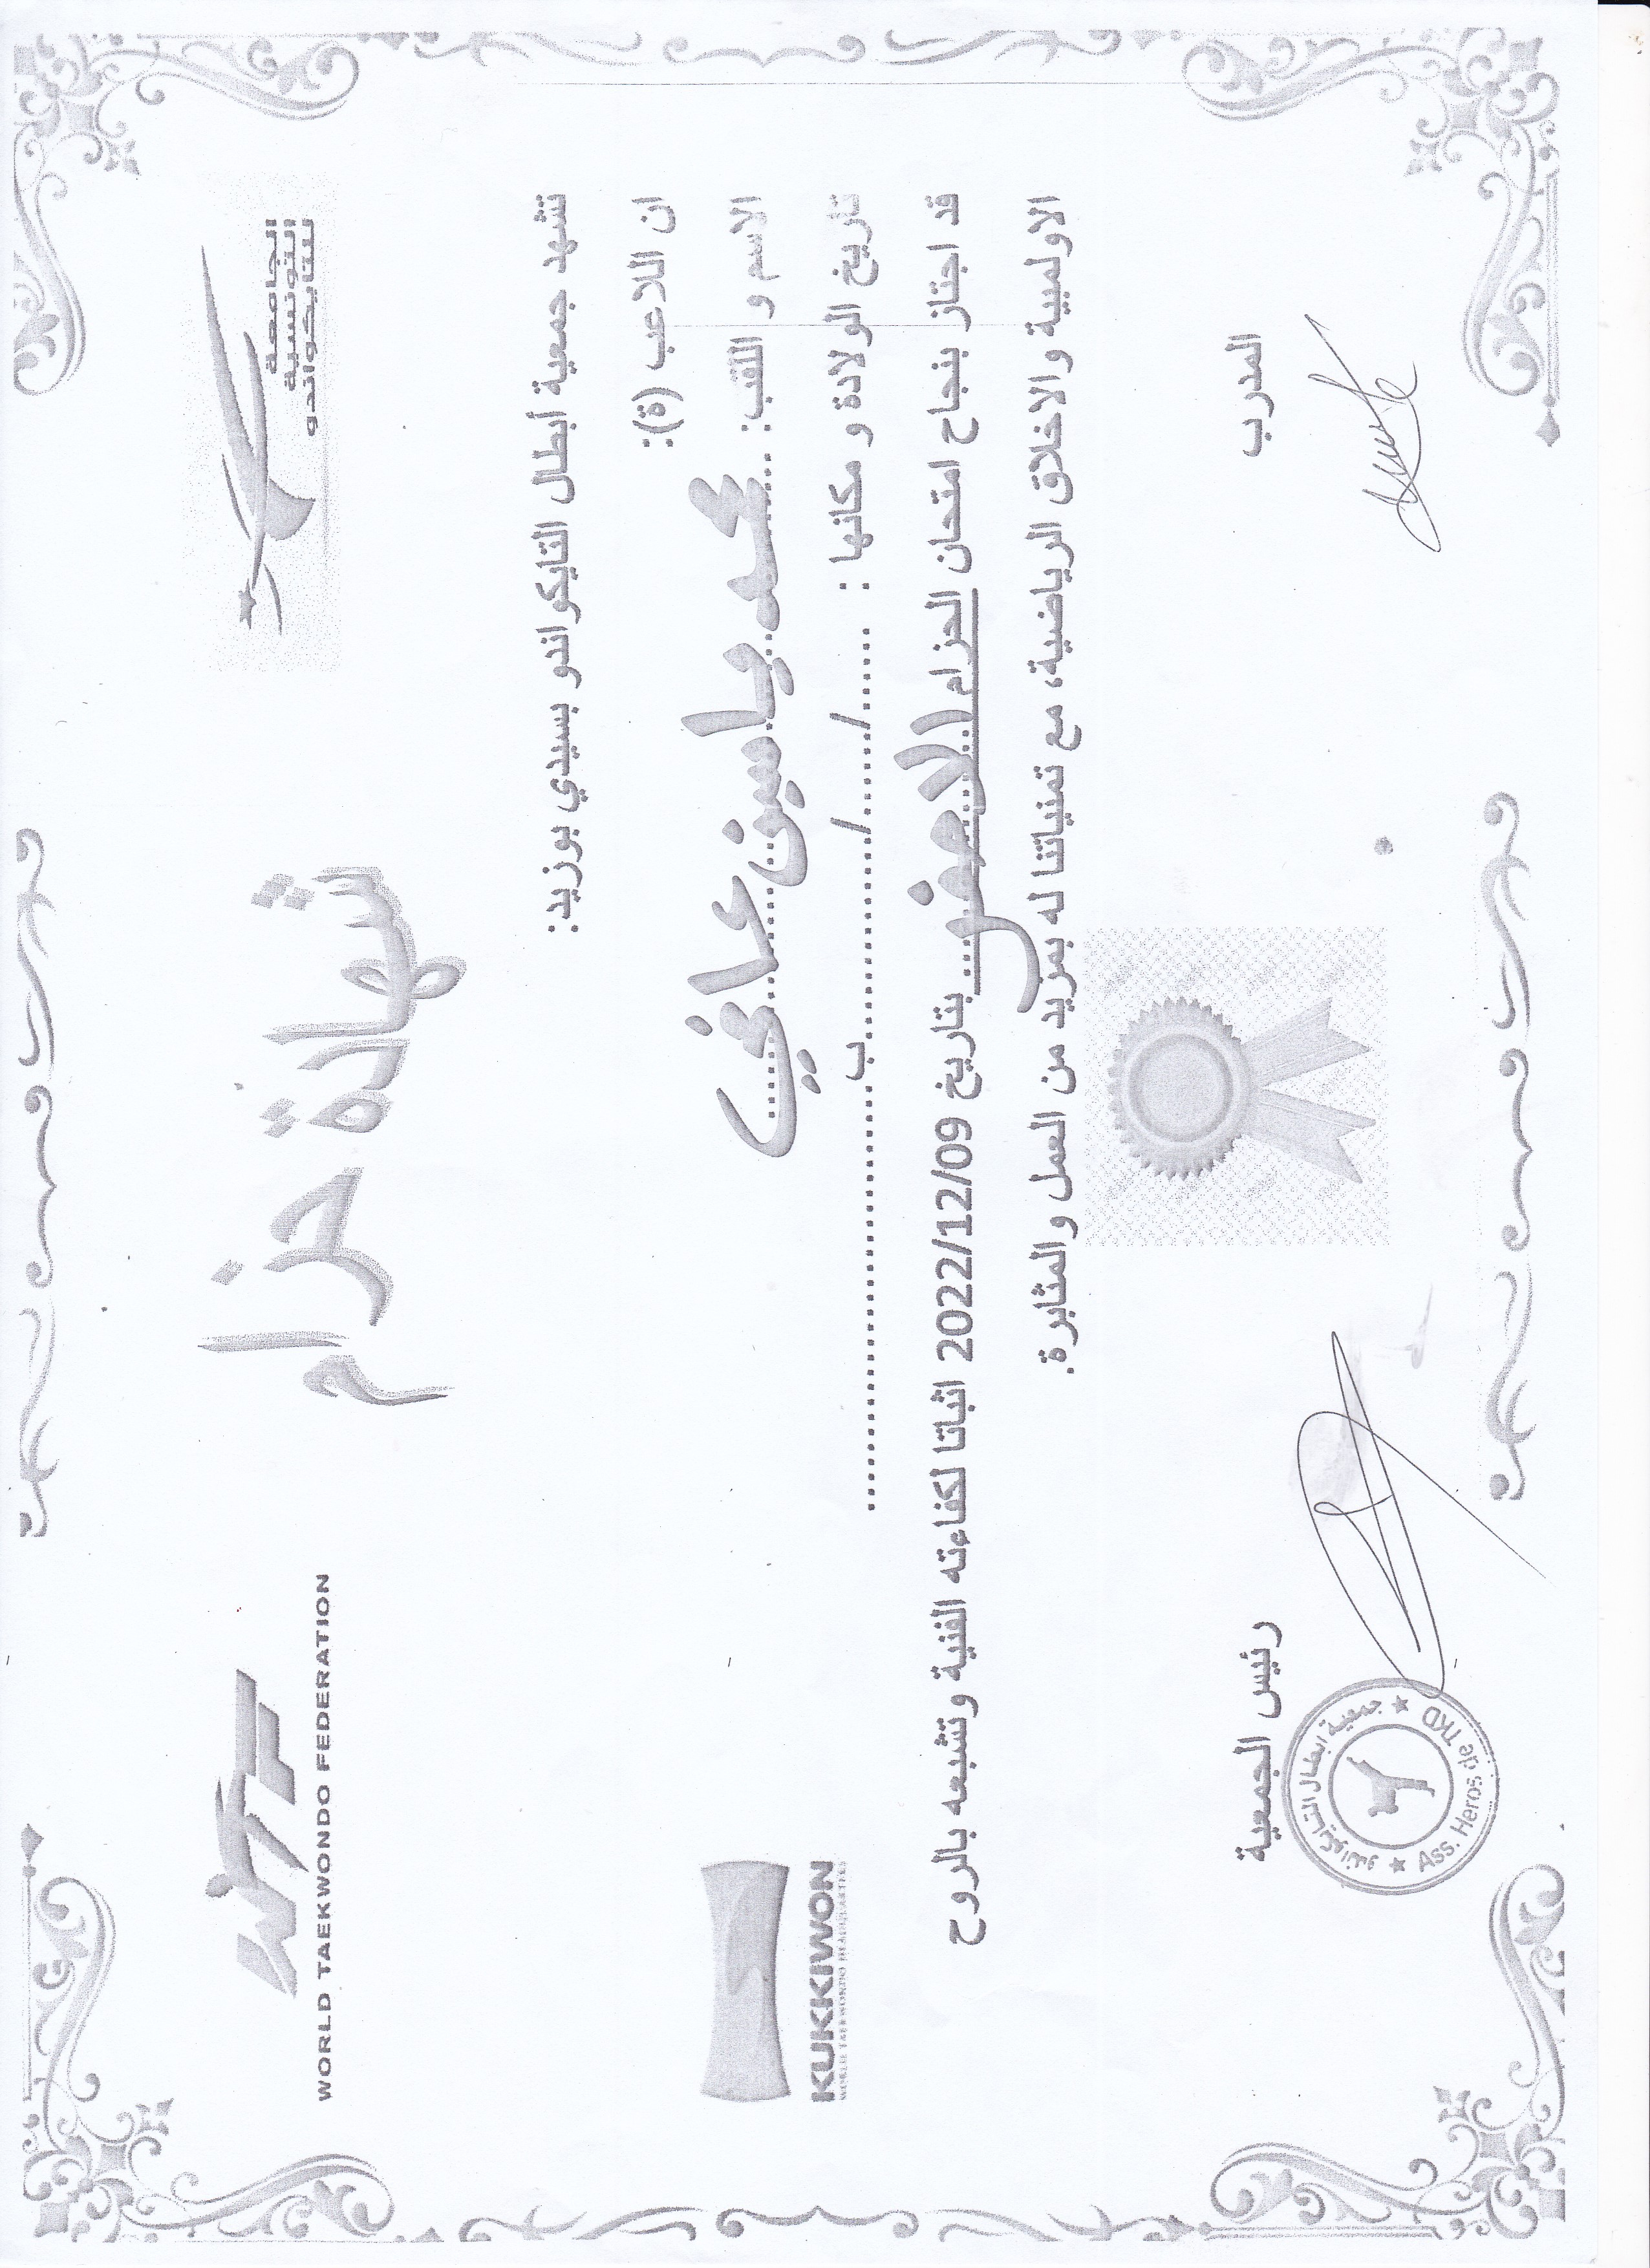 الجامعة
التونسية
للتايكواندو
شهادة حزام
WORLD TAEKWONDO FEDERATION
تشهد جمعية أبطال التايكواندو بسيدي بوزيد:
ان اللاعب (ة):
الاسم و اللقب: محمد ياسين عافي
KUKKIWON
WORLD TAEKWONDO HEADQUARTERS
تاريخ الولادة و مكانها : ....../......../..................ب..........................................
قد اجتاز بنجاح امتحان الحزام الاصفر بتاريخ 2022/12/09 اثباتا لكفاءته الفنية وتشبعه بالروح
الاولمبية والاخلاق الرياضية، مع تمنياتنا له بمزيد من العمل والمثابرة.
المدرب
رئيس الجمعية
جمعية ابطال التايكواندو
Ass. Heros de TKD